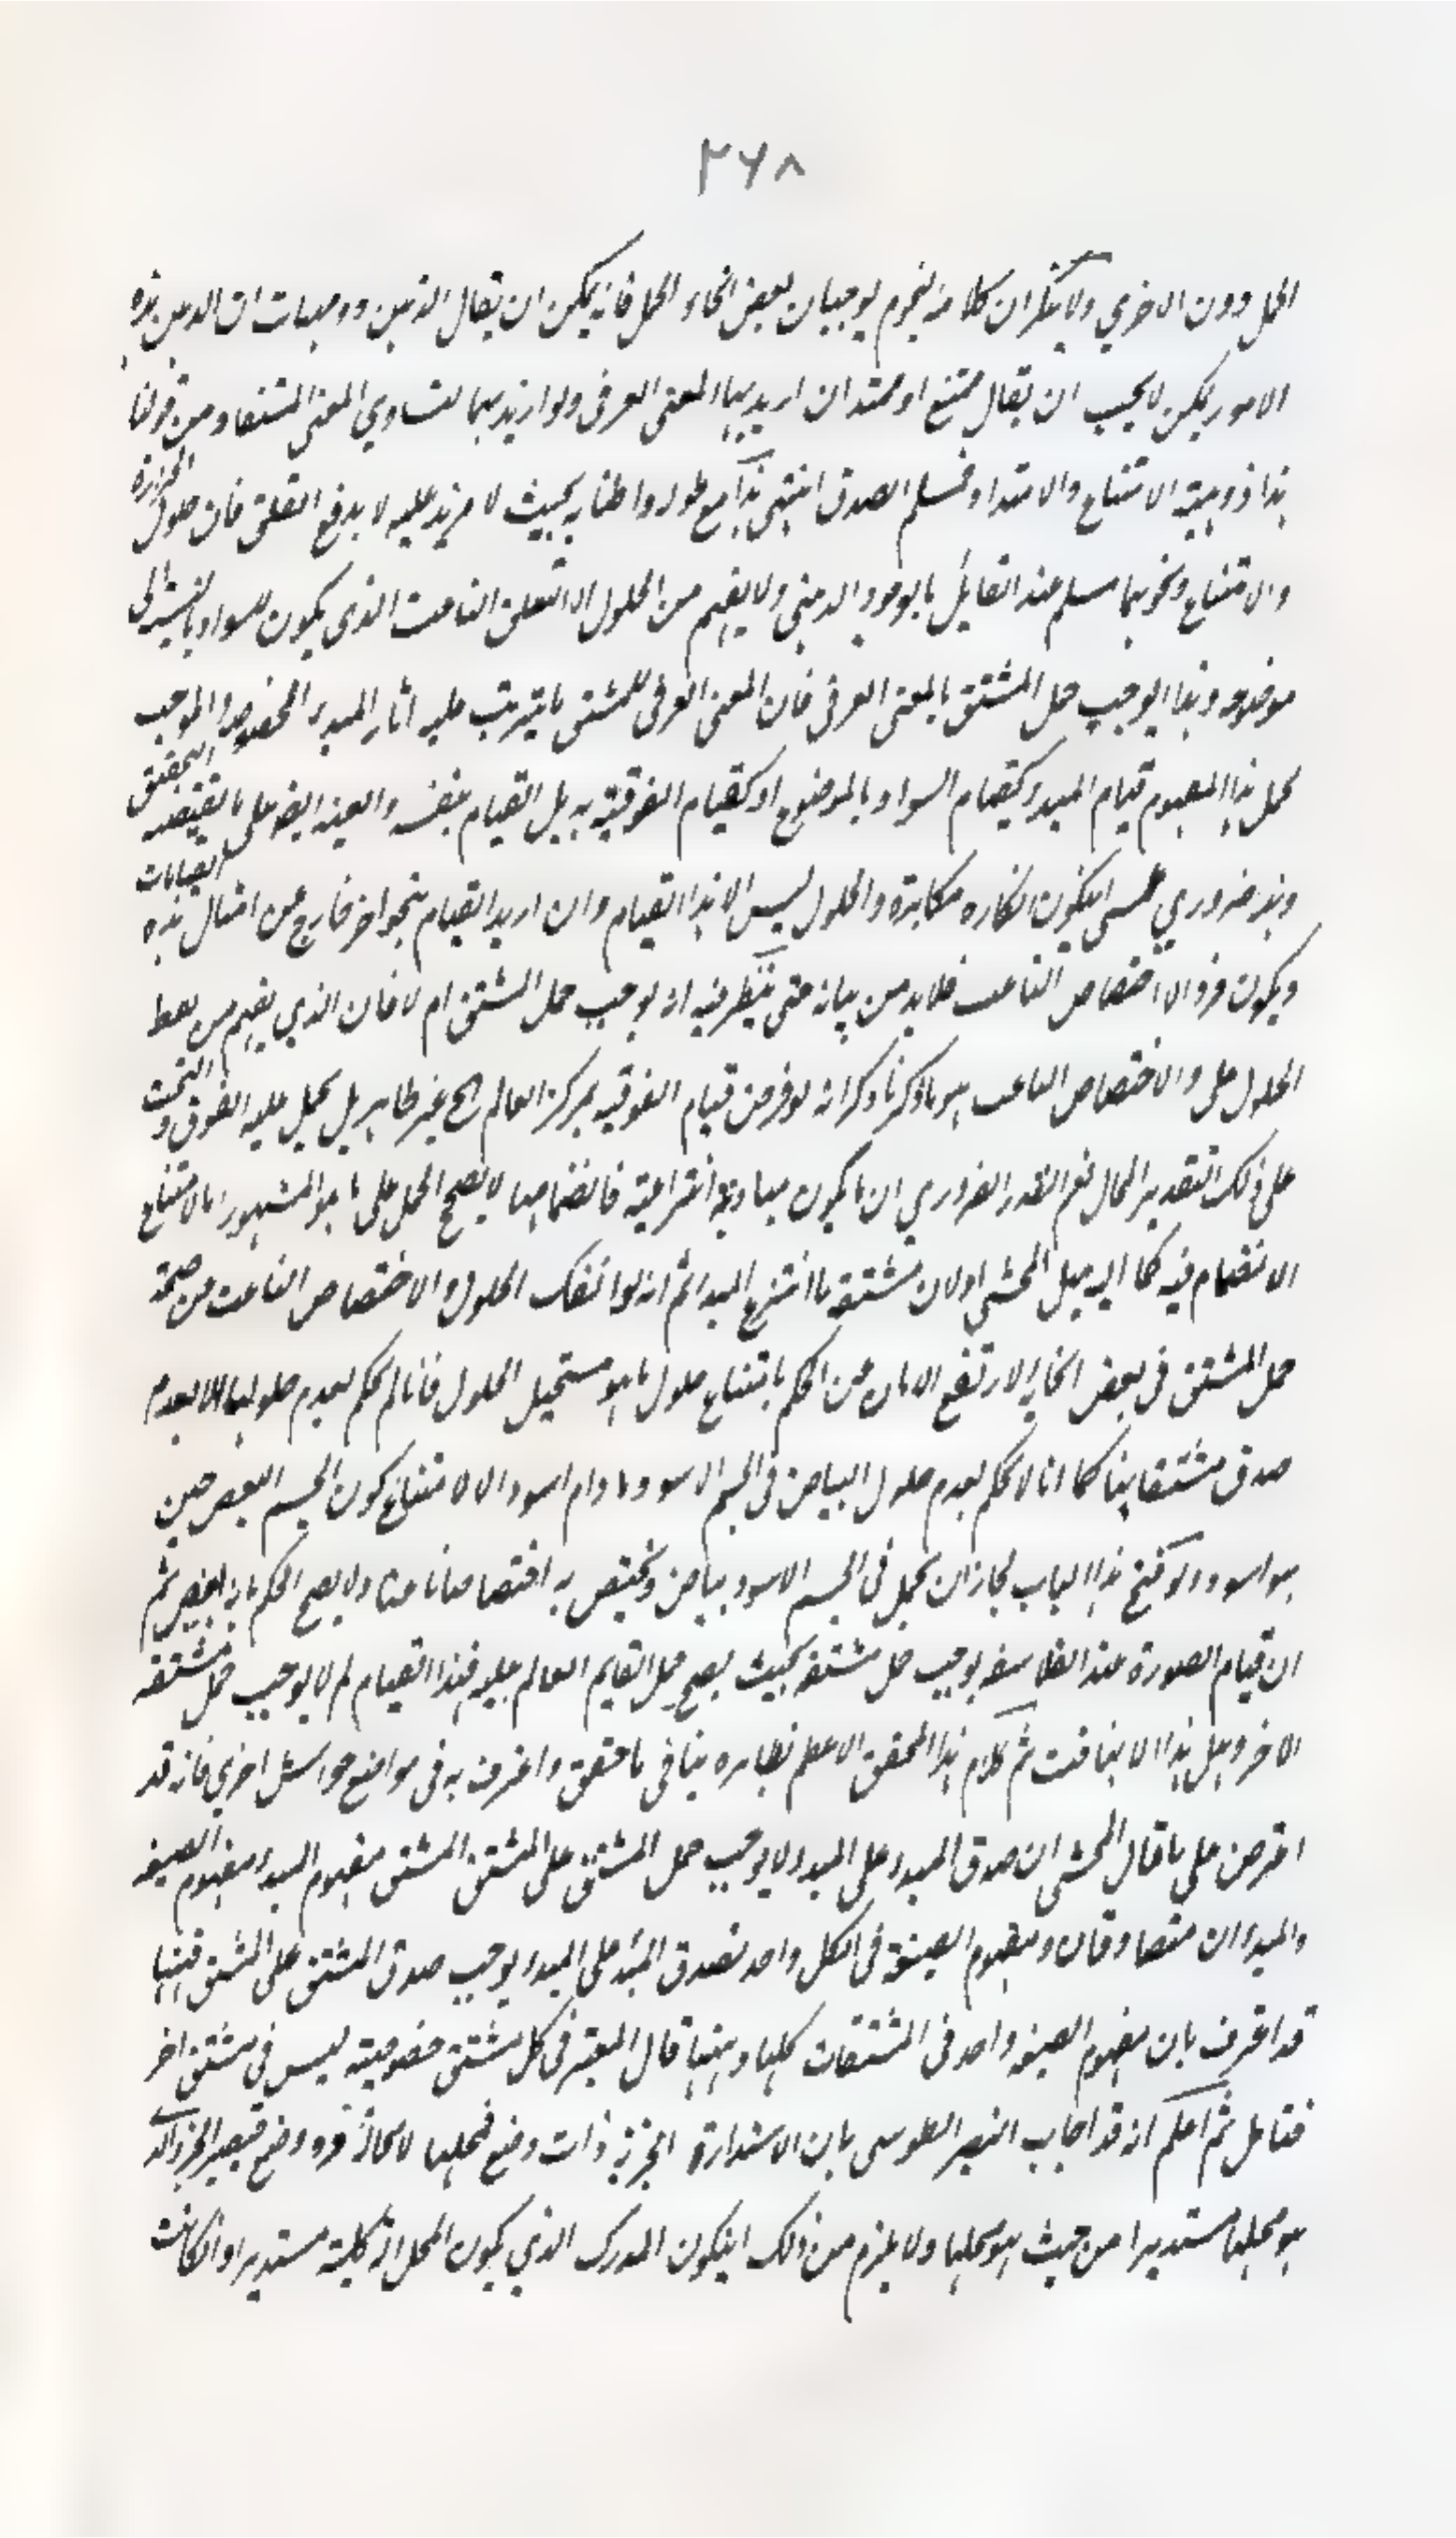 ٢٦٨
الحمل دون الاخرى ولا ينكر ان كلا منهم يوجبان بعض انحاء الحمل فانه يمكن ان يقال الذهن ذو هيئات ان الذهن بهذه
الامور يمكن لا يجب ان يقال ممتنع او ممتد ان اريد بهما المعنى العرفى ولو اريد بهما لتساوي المعنى المستفاد من قولنا
هذا ذو هيئة الامتناع والامتداد فمسلم الصدق انتهى هذا مع طوله واطنابه بحيث لا مزيد عليه لا يدفع القلق فان حلول الحرارة
والامتناع ونحوهما مسلم عند القايل بالوجود الذهنى ولا يفهم من الحلول الا التعلق الناعت الذى يكون للسواد بالنسبة الى
موضوعه وهذا يوجب حمل المشتق بالمعنى العرفى فان المعنى العرفى للمشتق ما يترتب عليه اثار المبدء المخصوصة والموجب
لحمل هذا المفهوم قيام المبدء كقيام السواد بالموضوع او كقيام الفوقية به بل القيام بنفسه والعينه ايضا على ما يقتضيه التحقيق
وهذ ضروري عسى ان يكون انكاره مكابرة والحلول ليس الا هذا القيام وان اريد القيام بنحو اخر خارج عن امثال هذه القيامات
ويكون فردا لاختصاص الناعت فلا بد من بيانه حتى ينظر فيه انه يوجب حمل المشتق ام لا فان الذي يفهم من لفظ
الحلول على والاختصاص الناعت هو ما ذكرنا وذكر انه لو فرض قيام الفوقية بمركز العالم الخ غير ظاهر بل يحمل عليه الفوق والتحت
على ذلك التقدير المحال نعم القدر الضروري ان ما يكون مباديه انتزاعية فانضمامها لا يصحح الحمل على ما هو المشهور اما لامتناع
الانضمام فيه كما اليه ميل المحشي او لان مشتقه ما انتزع المبدأ ثم انه لو انفك الحلول والاختصاص الناعت عن صحة
حمل المشتق فى بعض انحائه لارتفع الامان عن الحكم بامتناع حلول ما هو مستحيل الحلول فانا لم نحكم بعدم حلولها الا لعدم
صدق مشتقاتها كما انا لا نحكم بعدم حلول البياض فى الجسم الاسود مادام اسود الا لامتناع كون الجسم ابيض حين
هو اسود ولو فتح هذا الباب لجاز ان يحل فى الجسم الاسود بياض ويختص به اختصاصا ناعتا ولا يصح الحكم بانه ابيض ثم
ان قيام الصورة عند الفلاسفه يوجب حمل مشتقه بحيث يصح حمل القايم العالم عليه فهذا القيام لم لا يوجب حمل مشتقه
الاخر وهل هذا الا تهافت ثم كلام هذا المحقق الاعلم بظاهره ينافى ما حقق واعترف به فى مواضع حواشى اخرى فانه قد
اعترض على ما قال المحشي ان صدق المبدء على المبدء لا يوجب حمل المشتق على المشتق المشتق مفهوم المبدء ومفهوم الصيغه
والمبدءان متصادقان ومفهوم الصيغة فى الكل واحد فصدق المبدء على المبدء يوجب صدق المشتق على المشتق فههنا
قد اعترف بان مفهوم الصيغه واحد فى المشتقات كلها وههنا قال المعتبر فى كل مشتق خصوصية ليس في مشتق اخر
فتامل ثم اعلم انه قد اجاب النصير الطوسى بان الاستدارة الجزئية ذات وضع فمحلها لا محالة ذو وضع فيصير الجزء الذي
هو محلها مستديرا من حيث هو محلها ولا يلزم من ذلك ان يكون المدرك الذي يكون المحل الة كلية مستديرا وان كانت